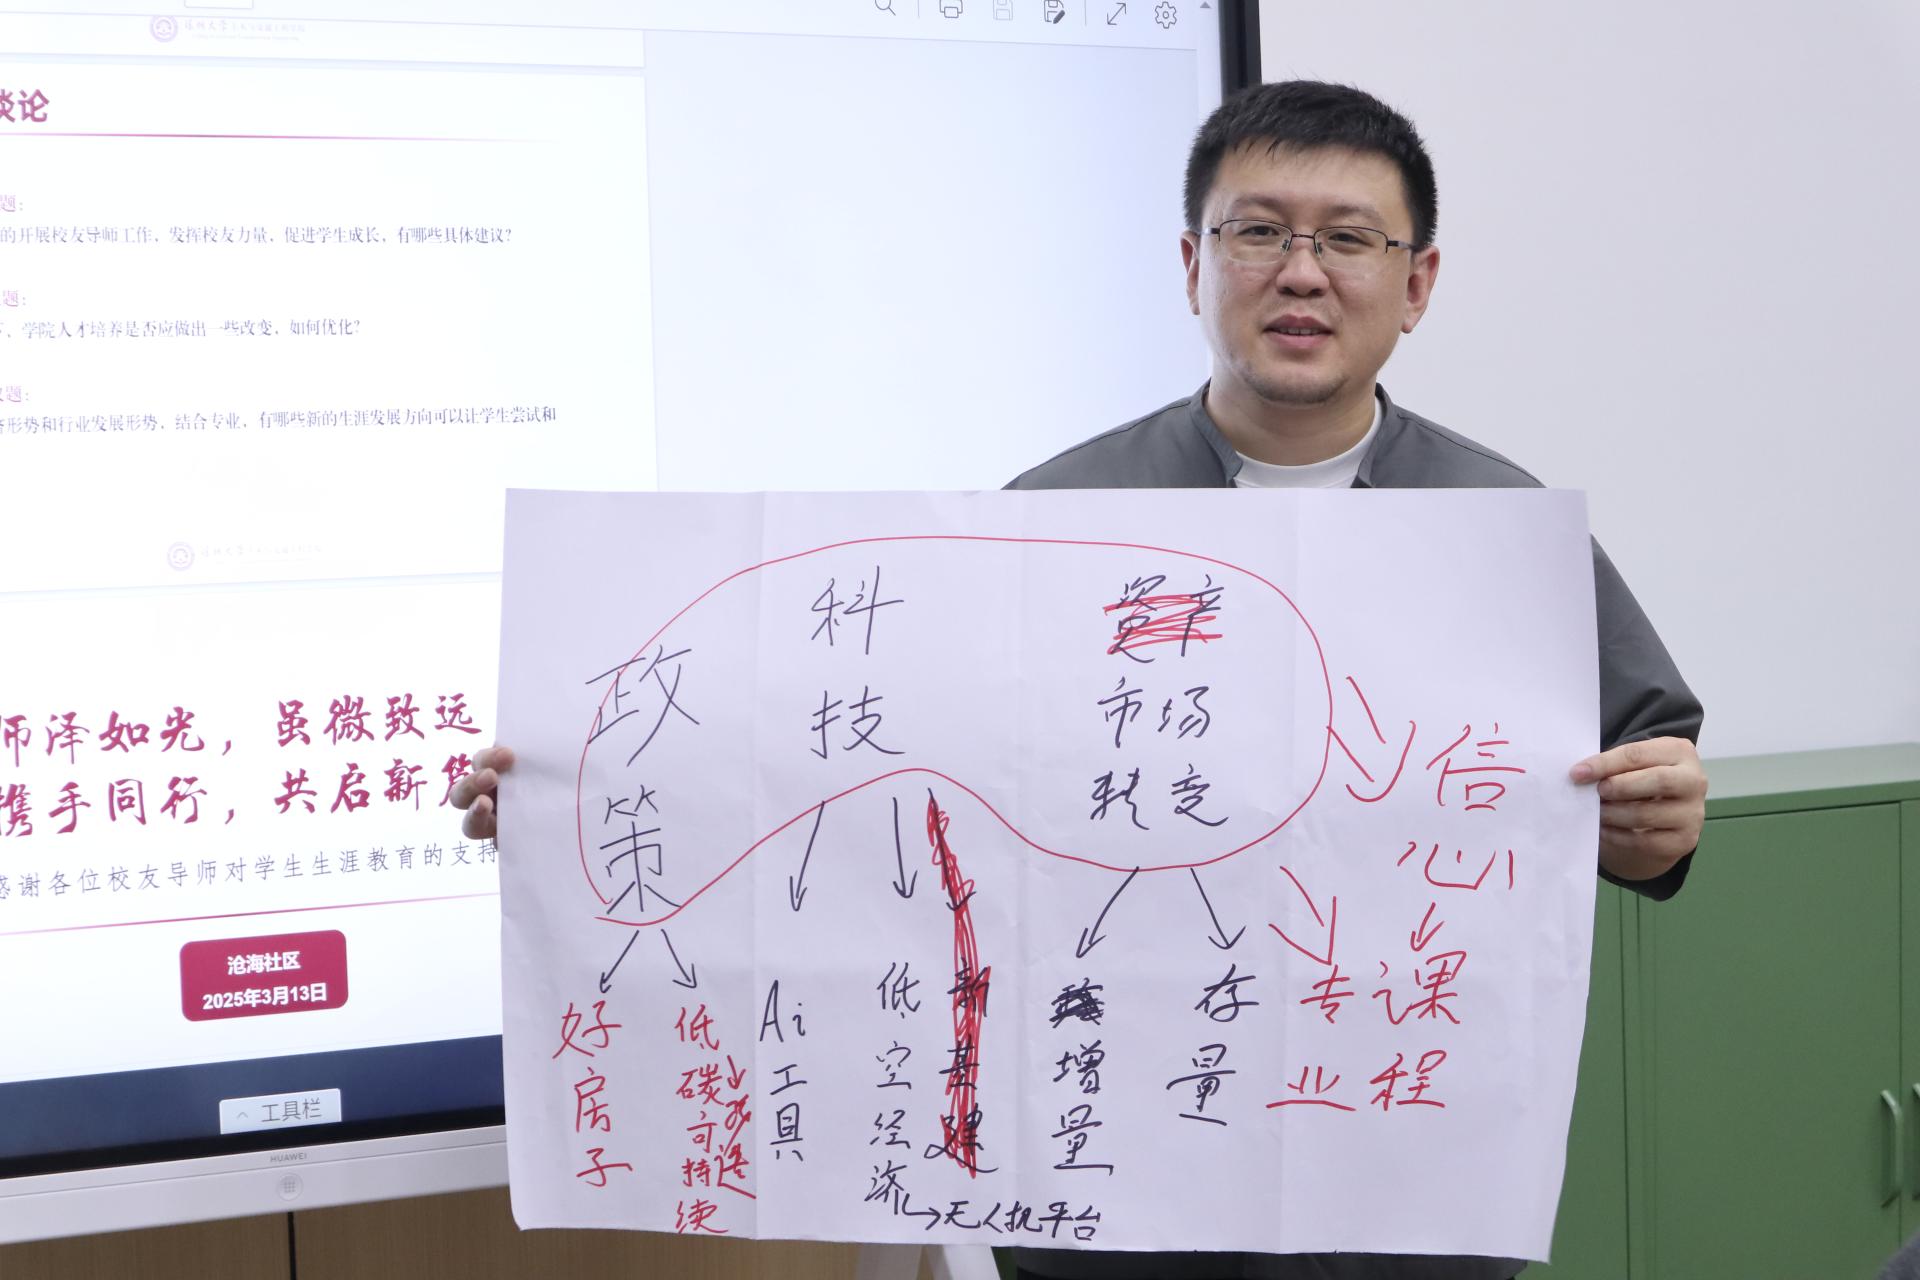 深圳大学土木与交通工程学院
谈论
题:
的开展校友导师工作，发挥校友力量，促进学生成长，有哪些具体建议？
题:
学院人才培养是否应做出一些改变，如何优化？
题:
形势和行业发展形势，结合专业，有哪些新的生涯发展方向可以让学生尝试和
深圳大学土木与交通工程学院
师泽如光，虽微致远
携手同行，共启新篇
感谢各位校友导师对学生生涯教育的支持
沧海社区
2025年3月13日
工具栏
HUAWEI
政策
科技
资产
市场
转变
信心
好房子
低碳可持续
改造
Ai工具
低空经济
无人机平台
新基建
增量
存量
专业
课程